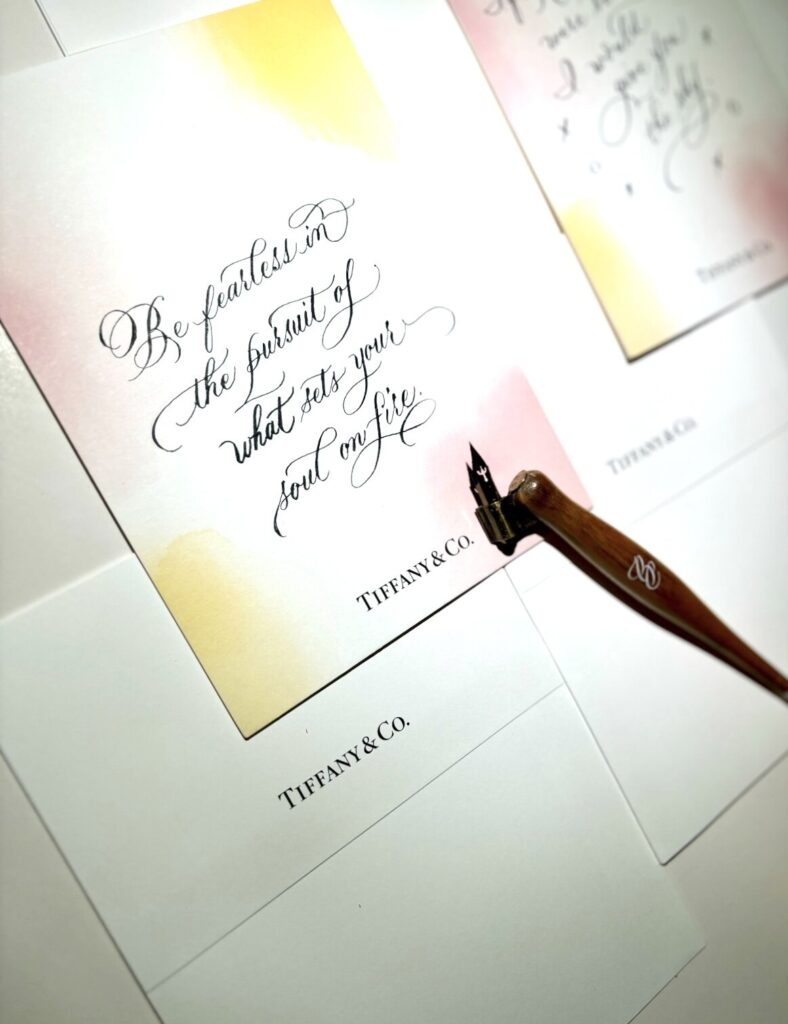 Be fearless in
the pursuit of
what sets your
soul on fire.
TIFFANY & CO.
TIFFANY & CO.
I would
give you
the sky.
TIFFANY & CO.
TIFFANY & CO.